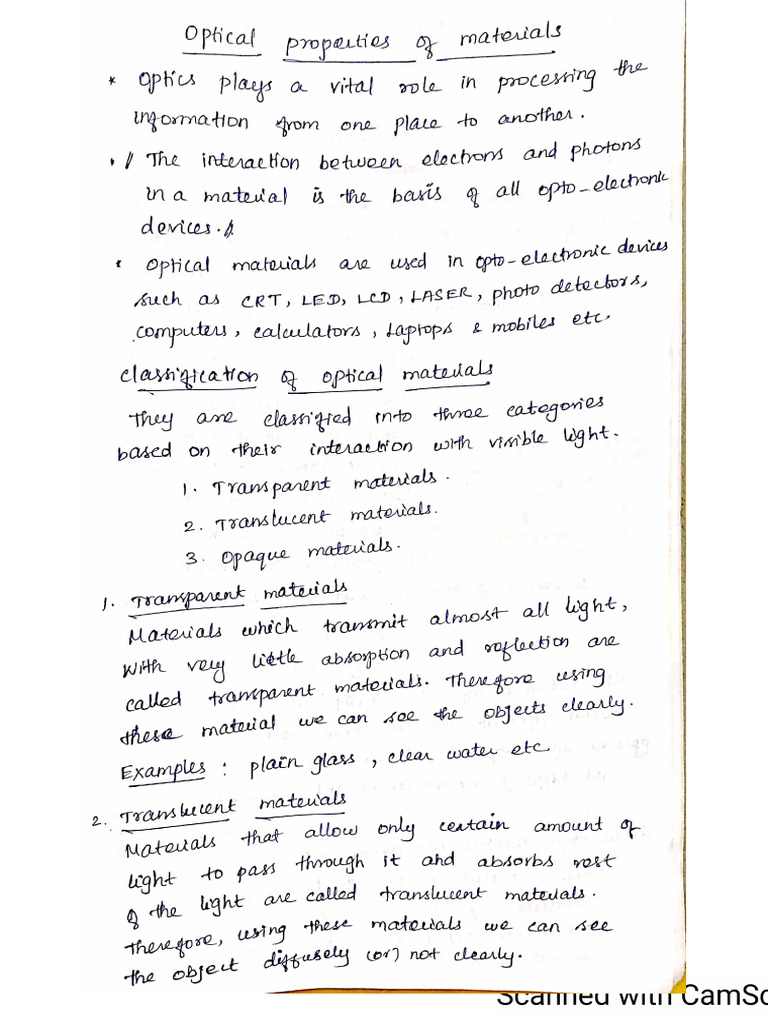 Optical properties of materials
* Optics plays a vital role in processing the
information from one place to another.
• // The interaction between electrons and photons
in a material is the basis of all opto-electronic
devices.//
* Optical materials are used in opto-electronic devices
such as CRT, LED, LCD, LASER, photo detectors,
computers, calculators, Laptops & mobiles etc.
Classification of optical materials
They are classified into three categories
based on their interaction with visible light.
1. Transparent materials.
2. Translucent materials.
3. Opaque materials.
1. Transparent materials
Materials which transmit almost all light,
with very little absorption and reflection are
called transparent materials. Therefore using
these material we can see the objects clearly.
Examples : plain glass, clear water etc
2. Translucent materials
Materials that allow only certain amount of
light to pass through it and absorbs rest
of the light are called translucent materials.
therefore, using these materials we can see
the object diffusely (or) not clearly.
Scanned with CamSc